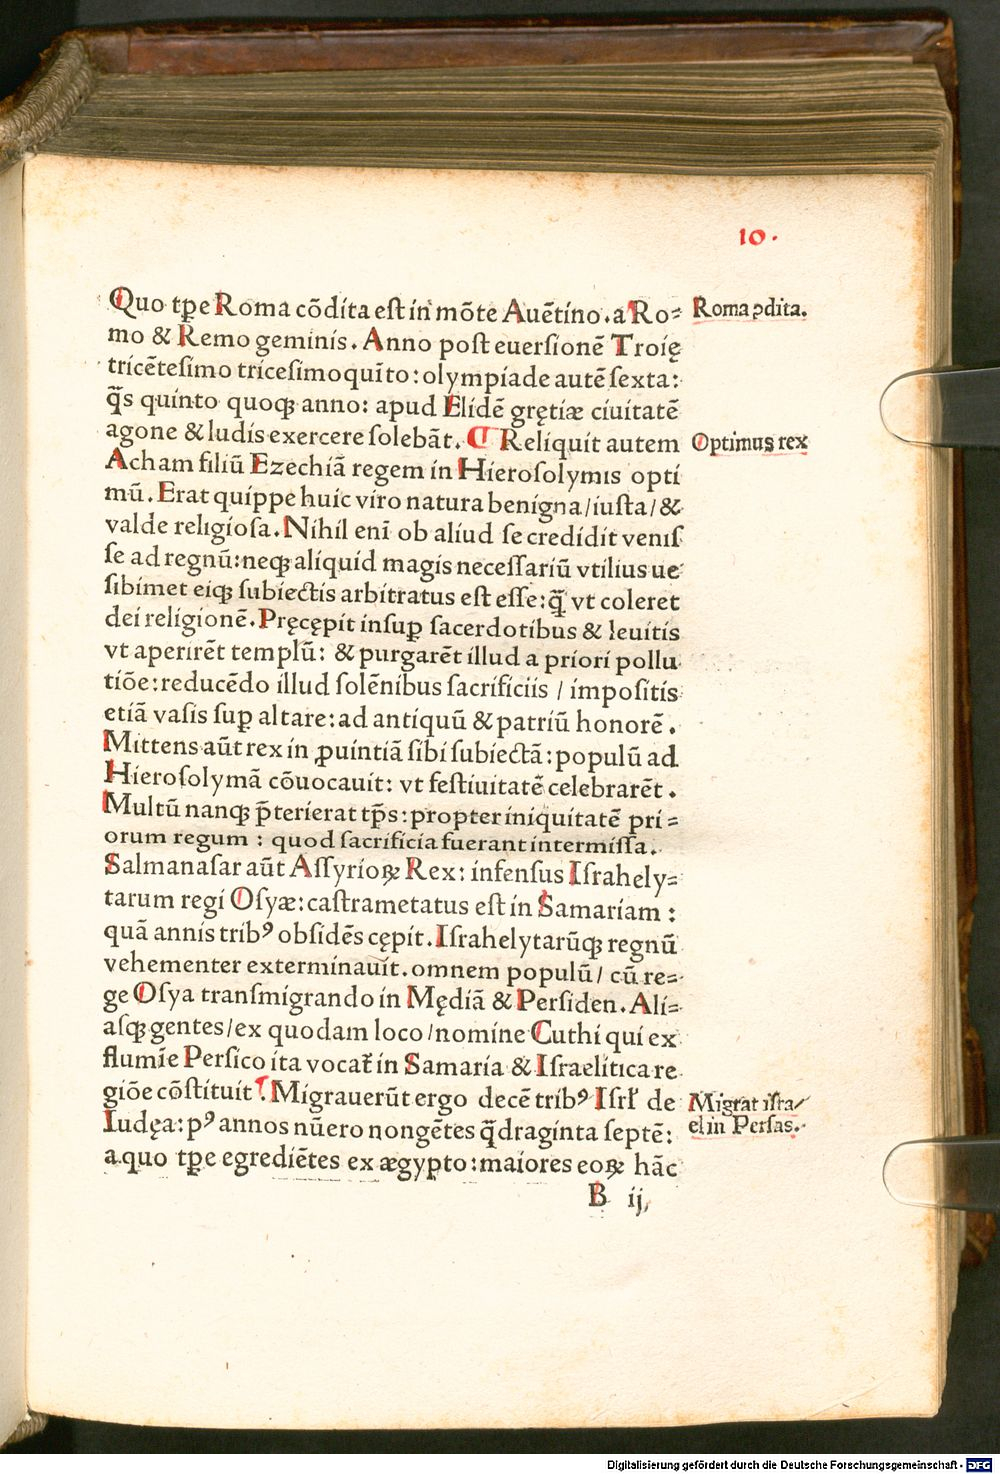 10.
Quo tꝑe Roma cõdita est in mõte Auẽtino. a Ro⸗
mo & Remo geminis. Anno post euersionẽ Troię
tricẽtesimo tricesimoquĩto: olympiade autẽ sexta:
q̃s quinto quoqꝫ anno: apud Elidẽ grętiæ ciuitatẽ
agone & ludis exercere solebãt. ¶ Reliquit autem
Acham filiũ Ezechiã regem in Hierosolymis opti
mũ. Erat quippe huic viro natura benigna/iusta/&
valde religiosa. Nihil enĩ ob aliud se credidit venis
se ad regnũ: neqꝫ aliquid magis necessariũ vtilius ue
sibimet eiqꝫ subiectis arbitratus est esse: q̃ vt coleret
dei religionẽ. Pręcępit insuꝑ sacerdotibus & leuitis
vt aperirẽt templũ: & purgarẽt illud a priori pollu
tiõe: reducẽdo illud solẽnibus sacrificiis / impositis
etiã vasis suꝑ altare: ad antiquũ & patriũ honorẽ.
Mittens aũt rex in ꝓuintiã sibi subiectã: populũ ad
Hierosolymã cõuocauit: vt festiuitatẽ celebrarẽt.
Multũ nanqꝫ p̃terierat tp̃s: propter iniquitatẽ pri⸗
orum regum: quod sacrificia fuerant intermissa.
Salmanasar aũt Assyrioꝝ Rex: infensus Israhely⸗
tarum regi Osyæ: castrametatus est in Samariam:
quã annis tribꝰ obsidẽs cępit. Israhelytarũqꝫ regnũ
vehementer exterminauit. omnem populũ/ cũ re⸗
ge Osya transmigrando in Mędiã & Persiden. Ali⸗
asqꝫ gentes/ex quodam loco/nomine Cuthi qui ex
flumĩe Persico ita vocat̃ in Samaria & Israelitica re
giõe cõstituit. Migrauerũt ergo decẽ tribꝰ Isrl̃ de
Iudęa: pꝰ annos nũero nongẽtes q̃draginta septẽ:
a quo tꝑe egrediẽtes ex ægypto: maiores eoꝝ hãc
B ij
Roma ꝯdita.
Optimus rex
Migrat isra/
el in Persas.
Digitalisierung gefördert durch die Deutsche Forschungsgemeinschaft - DFG